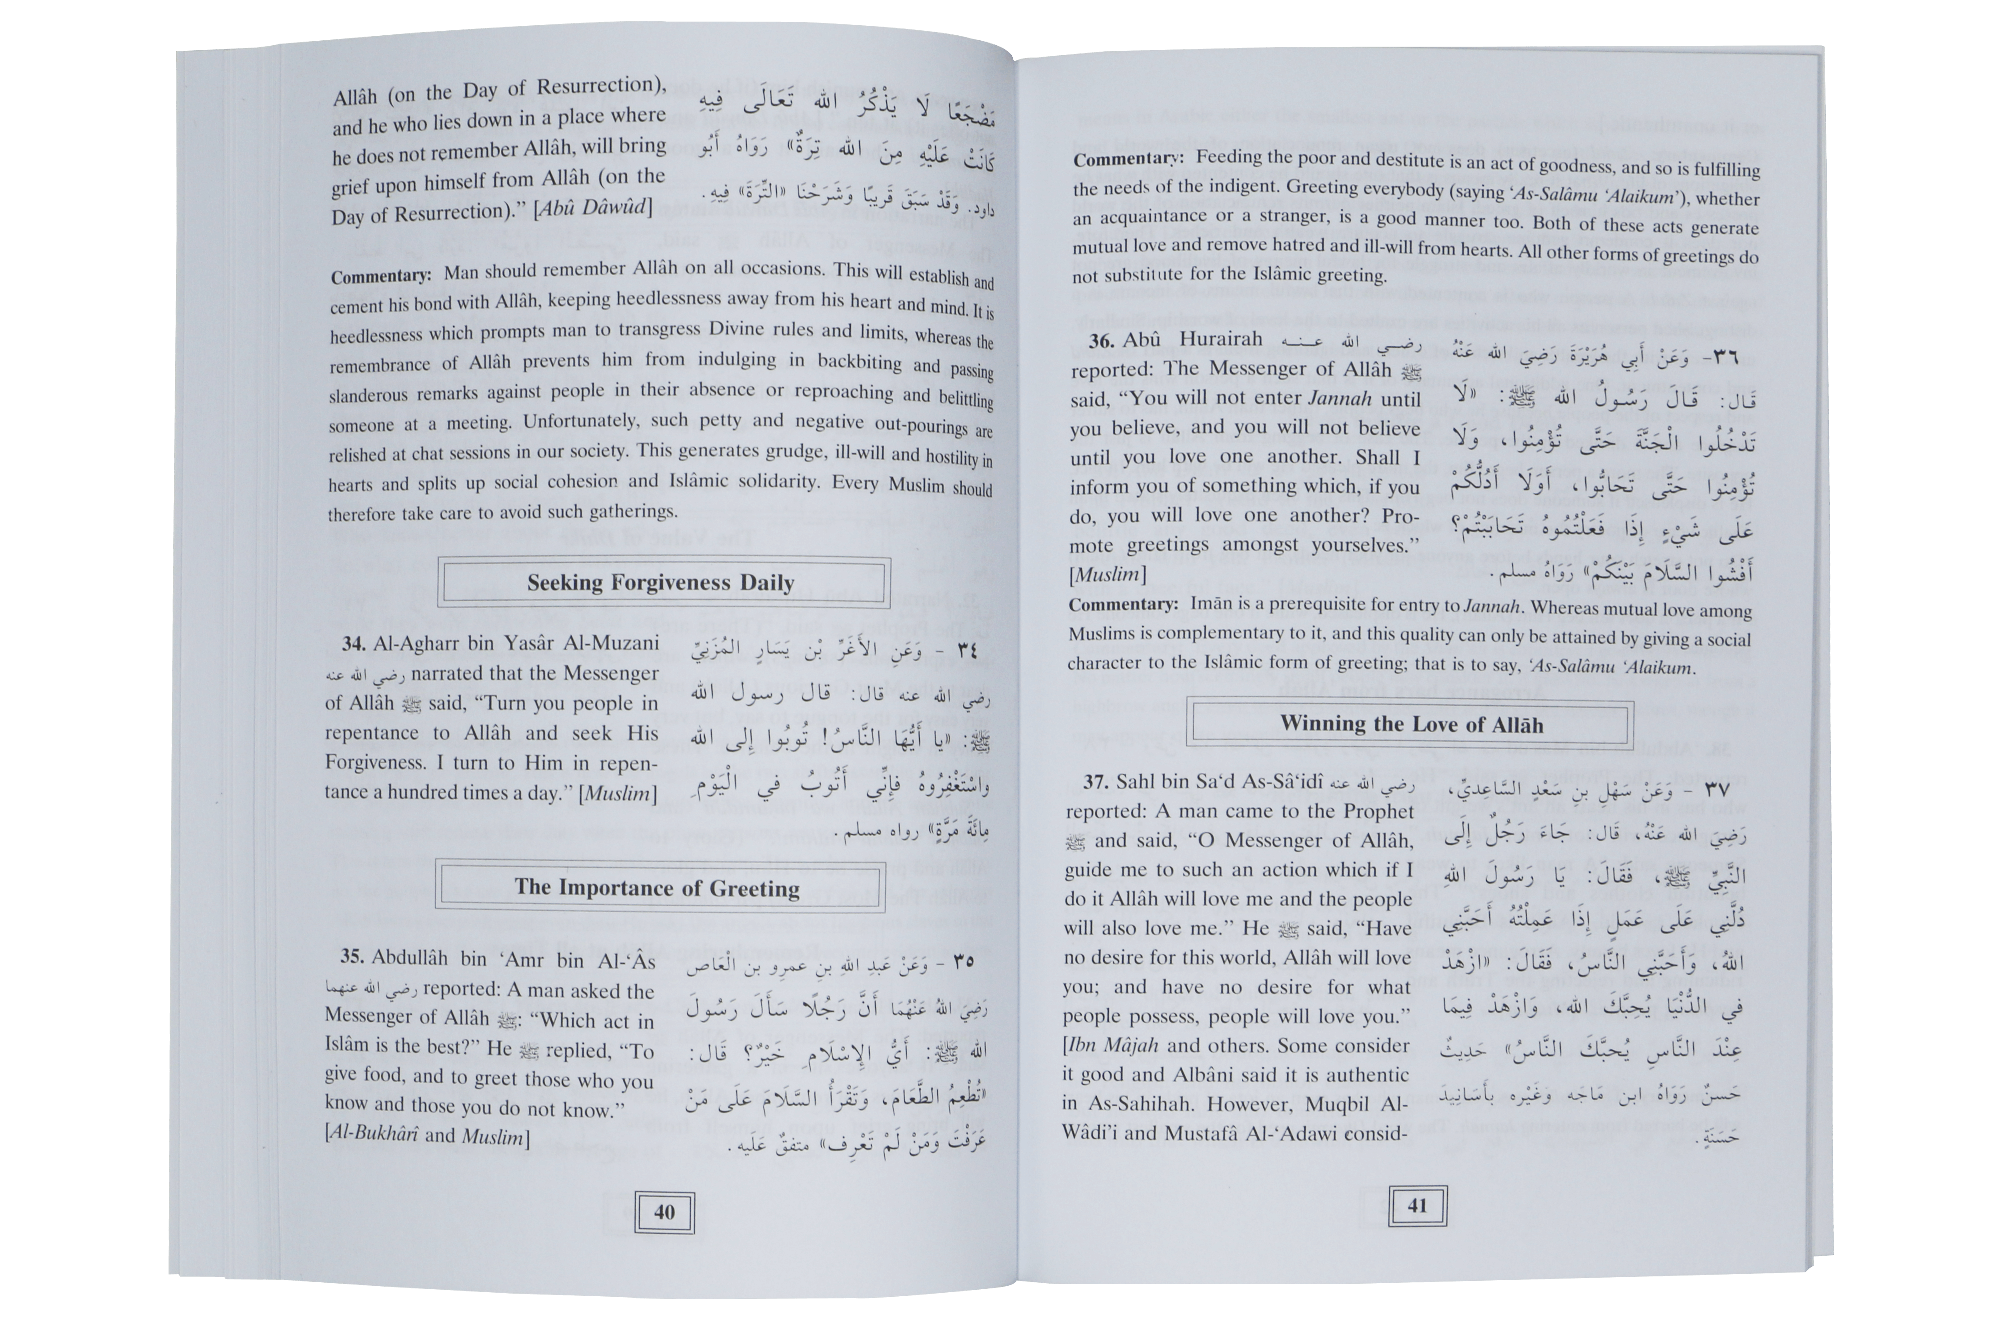 Allâh (on the Day of Resurrection),
and he who lies down in a place where
he does not remember Allâh, will bring
grief upon himself from Allâh (on the
Day of Resurrection).” [Abû Dâwûd]
مَضْجَعًا لَا يَذْكُرُ الله تَعَالَى فِيهِ
كَانَتْ عَلَيْهِ مِنَ الله تِرَةٌ» رَوَاهُ أَبُو
داود. وَقَدْ سَبَقَ قَرِيبًا وَشَرَحْنَا «التِّرَةَ» فِيهِ.
Commentary: Man should remember Allâh on all occasions. This will establish and
cement his bond with Allâh, keeping heedlessness away from his heart and mind. It is
heedlessness which prompts man to transgress Divine rules and limits, whereas the
remembrance of Allâh prevents him from indulging in backbiting and passing
slanderous remarks against people in their absence or reproaching and belittling
someone at a meeting. Unfortunately, such petty and negative out-pourings are
relished at chat sessions in our society. This generates grudge, ill-will and hostility in
hearts and splits up social cohesion and Islâmic solidarity. Every Muslim should
therefore take care to avoid such gatherings.
Seeking Forgiveness Daily
34. Al-Agharr bin Yasâr Al-Muzani
رضي الله عنه narrated that the Messenger
of Allâh ﷺ said, “Turn you people in
repentance to Allâh and seek His
Forgiveness. I turn to Him in repen-
tance a hundred times a day.” [Muslim]
٣٤ - وَعَنِ الأَغَرِّ بْن يَسَارٍ المُزَنِيِّ
رضي الله عنه قال: قال رسول الله
ﷺ: «يا أَيُّهَا النَّاسُ! تُوبُوا إِلى الله
واسْتَغْفِرُوهُ فإِنِّي أَتُوبُ في الْيَوْمِ
مِائَةَ مَرَّةٍ» رواه مسلم.
The Importance of Greeting
35. Abdullâh bin ‘Amr bin Al-‘Âs
رضي الله عنهما reported: A man asked the
Messenger of Allâh ﷺ: “Which act in
Islâm is the best?” He ﷺ replied, “To
give food, and to greet those who you
know and those you do not know.”
[Al-Bukhârî and Muslim]
٣٥ - وَعَنْ عَبدِ اللهِ بنِ عمرِو بن الْعَاص
رَضِيَ اللهُ عَنْهُمَا أَنَّ رَجُلًا سَأَلَ رَسُولَ
الله ﷺ: أَيُّ الإِسْلَامِ خَيْرٌ؟ قَال:
«تُطْعِمُ الطَّعَامَ، وَتَقْرَأُ السَّلَامَ عَلَى مَنْ
عَرَفْتَ وَمَنْ لَمْ تَعْرِف» متفقٌ عَلَيه.
40
Commentary: Feeding the poor and destitute is an act of goodness, and so is fulfilling
the needs of the indigent. Greeting everybody (saying ‘As-Salâmu ‘Alaikum’), whether
an acquaintance or a stranger, is a good manner too. Both of these acts generate
mutual love and remove hatred and ill-will from hearts. All other forms of greetings do
not substitute for the Islâmic greeting.
36. Abû Hurairah رضي الله عنه
reported: The Messenger of Allâh ﷺ
said, “You will not enter Jannah until
you believe, and you will not believe
until you love one another. Shall I
inform you of something which, if you
do, you will love one another? Pro-
mote greetings amongst yourselves.”
[Muslim]
٣٦- وَعَنْ أَبِي هُرَيْرَةَ رَضِيَ الله عَنْهُ
قَال: قَالَ رَسُولُ الله ﷺ: «لَا
تَدْخُلُوا الْجَنَّةَ حَتَّى تُؤْمِنُوا، وَلَا
تُؤْمِنُوا حَتَّى تَحَابُّوا، أَوَلَا أَدُلُّكُمْ
عَلَى شَيْءٍ إِذَا فَعَلْتُمُوهُ تَحَابَبْتُمْ؟
أَفْشُوا السَّلَامَ بَيْنَكُمْ» رَوَاهُ مسلم.
Commentary: Imān is a prerequisite for entry to Jannah. Whereas mutual love among
Muslims is complementary to it, and this quality can only be attained by giving a social
character to the Islâmic form of greeting; that is to say, ‘As-Salâmu ‘Alaikum.
Winning the Love of Allāh
37. Sahl bin Sa‘d As-Sâ‘idî رضي الله عنه
reported: A man came to the Prophet
ﷺ and said, “O Messenger of Allâh,
guide me to such an action which if I
do it Allâh will love me and the people
will also love me.” He ﷺ said, “Have
no desire for this world, Allâh will love
you; and have no desire for what
people possess, people will love you.”
[Ibn Mâjah and others. Some consider
it good and Albâni said it is authentic
in As-Sahihah. However, Muqbil Al-
Wâdi’i and Mustafâ Al-‘Adawi consid-
٣٧ - وَعَنْ سَهْلِ بنِ سَعْدٍ السَّاعِدِيِّ،
رَضِيَ الله عَنْهُ، قَال: جَاءَ رَجُلٌ إِلَى
النَّبِيِّ ﷺ، فَقَالَ: يَا رَسُولَ اللهِ
دُلَّنِي عَلَى عَمَلٍ إِذَا عَمِلْتُهُ أَحَبَّنِي
اللهُ، وَأَحَبَّنِي النَّاسُ، فَقَالَ: «ازْهَدْ
في الدُّنْيَا يُحِبَّكَ الله، وَازْهَدْ فِيمَا
عِنْدَ النَّاسِ يُحبَّكَ النَّاسُ» حَدِيثٌ
حَسنٌ رَوَاهُ ابن مَاجَه وَغَيْرِه بأَسَانِيدَ
حَسَنَةٍ.
41